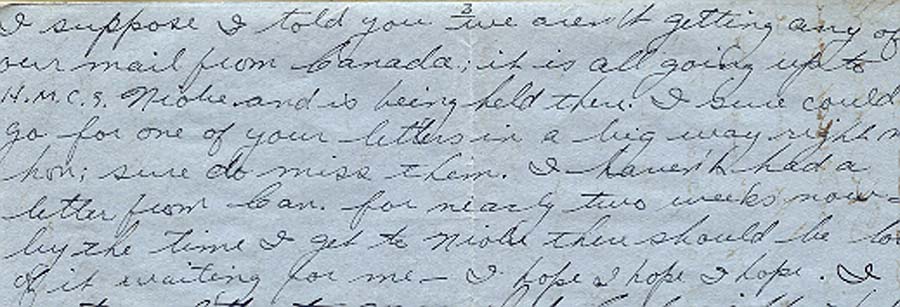 3
I suppose I told you we aren't getting any of
our mail from Canada; it is all going up to
H.M.C.S. Niobe and is being held there. I sure could
go for one of your letters in a big way right n
hon; sure do miss them. I haven't had a
letter from Can. for nearly two weeks now -
by the time I get to Niobe there should be lo
of it waiting for me - I hope I hope I hope. I